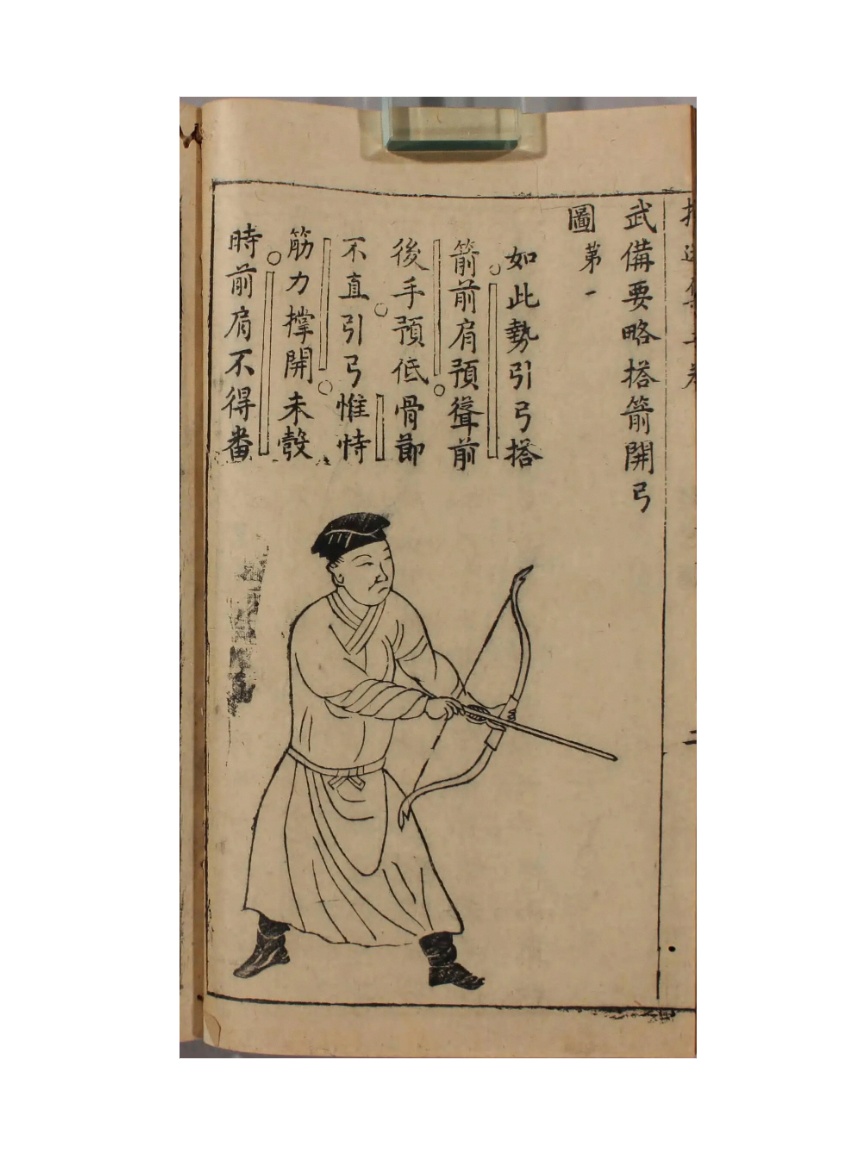 武備要略搭箭開弓
圖第一
如此勢引弓搭
箭前肩預聳前
後手預低骨節
不直引弓惟恃
筋力撑開未彀
時前肩不得番
二